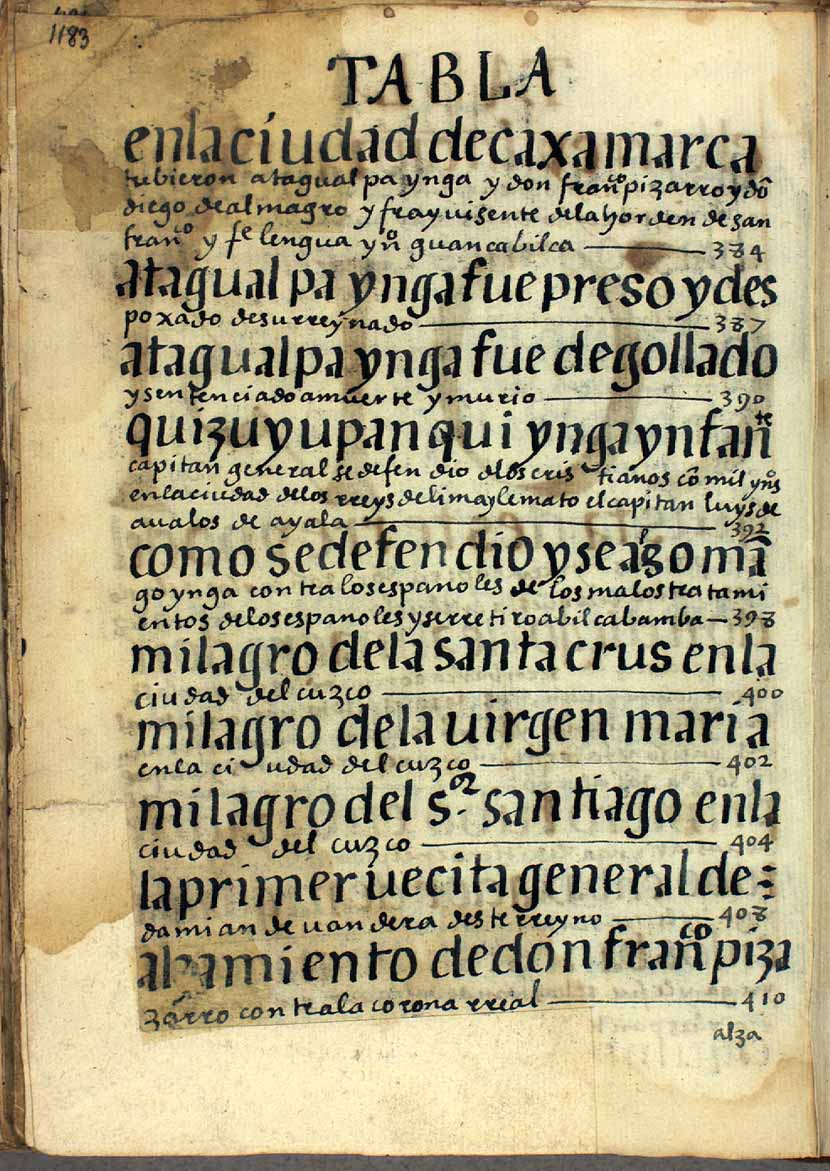 1183
TABLA
en la ciudad de caxamarca
tubieron atagualpa ynga y don fran.co pizarro y dõ
diego de almagro y fray uisente de la horden de san
fran.co y fe lengua yno guancabilca — 384
atagualpa ynga fue preso y des
poxado de su rreynado — 387
atagualpa ynga fue degollado
y sentenciado a muerte y murio — 390
quizu yupanqui ynga ynfante
capitan general se defendio de los cristianos cõ mil ynos
en la ciudad de los rreys de lima y le mato el capitan luys de
aualos de ayala — 392
como se defendio y se alzo mã
go ynga contra los espanoles de los malos tratami
entos de los espanoles y se rretiro a bilcabamba — 398
milagro de la santa crus en la
ciudad del cuzco — 400
milagro de la uirgen maria
en la ciudad del cuzco — 402
milagro del s.or santiago en la
ciudad del cuzco — 404
la primer uecita general de
damian de uandera deste rreyno — 408
alzamiento de don fran.co piza
zarro contra la corona rreal — 410
alza